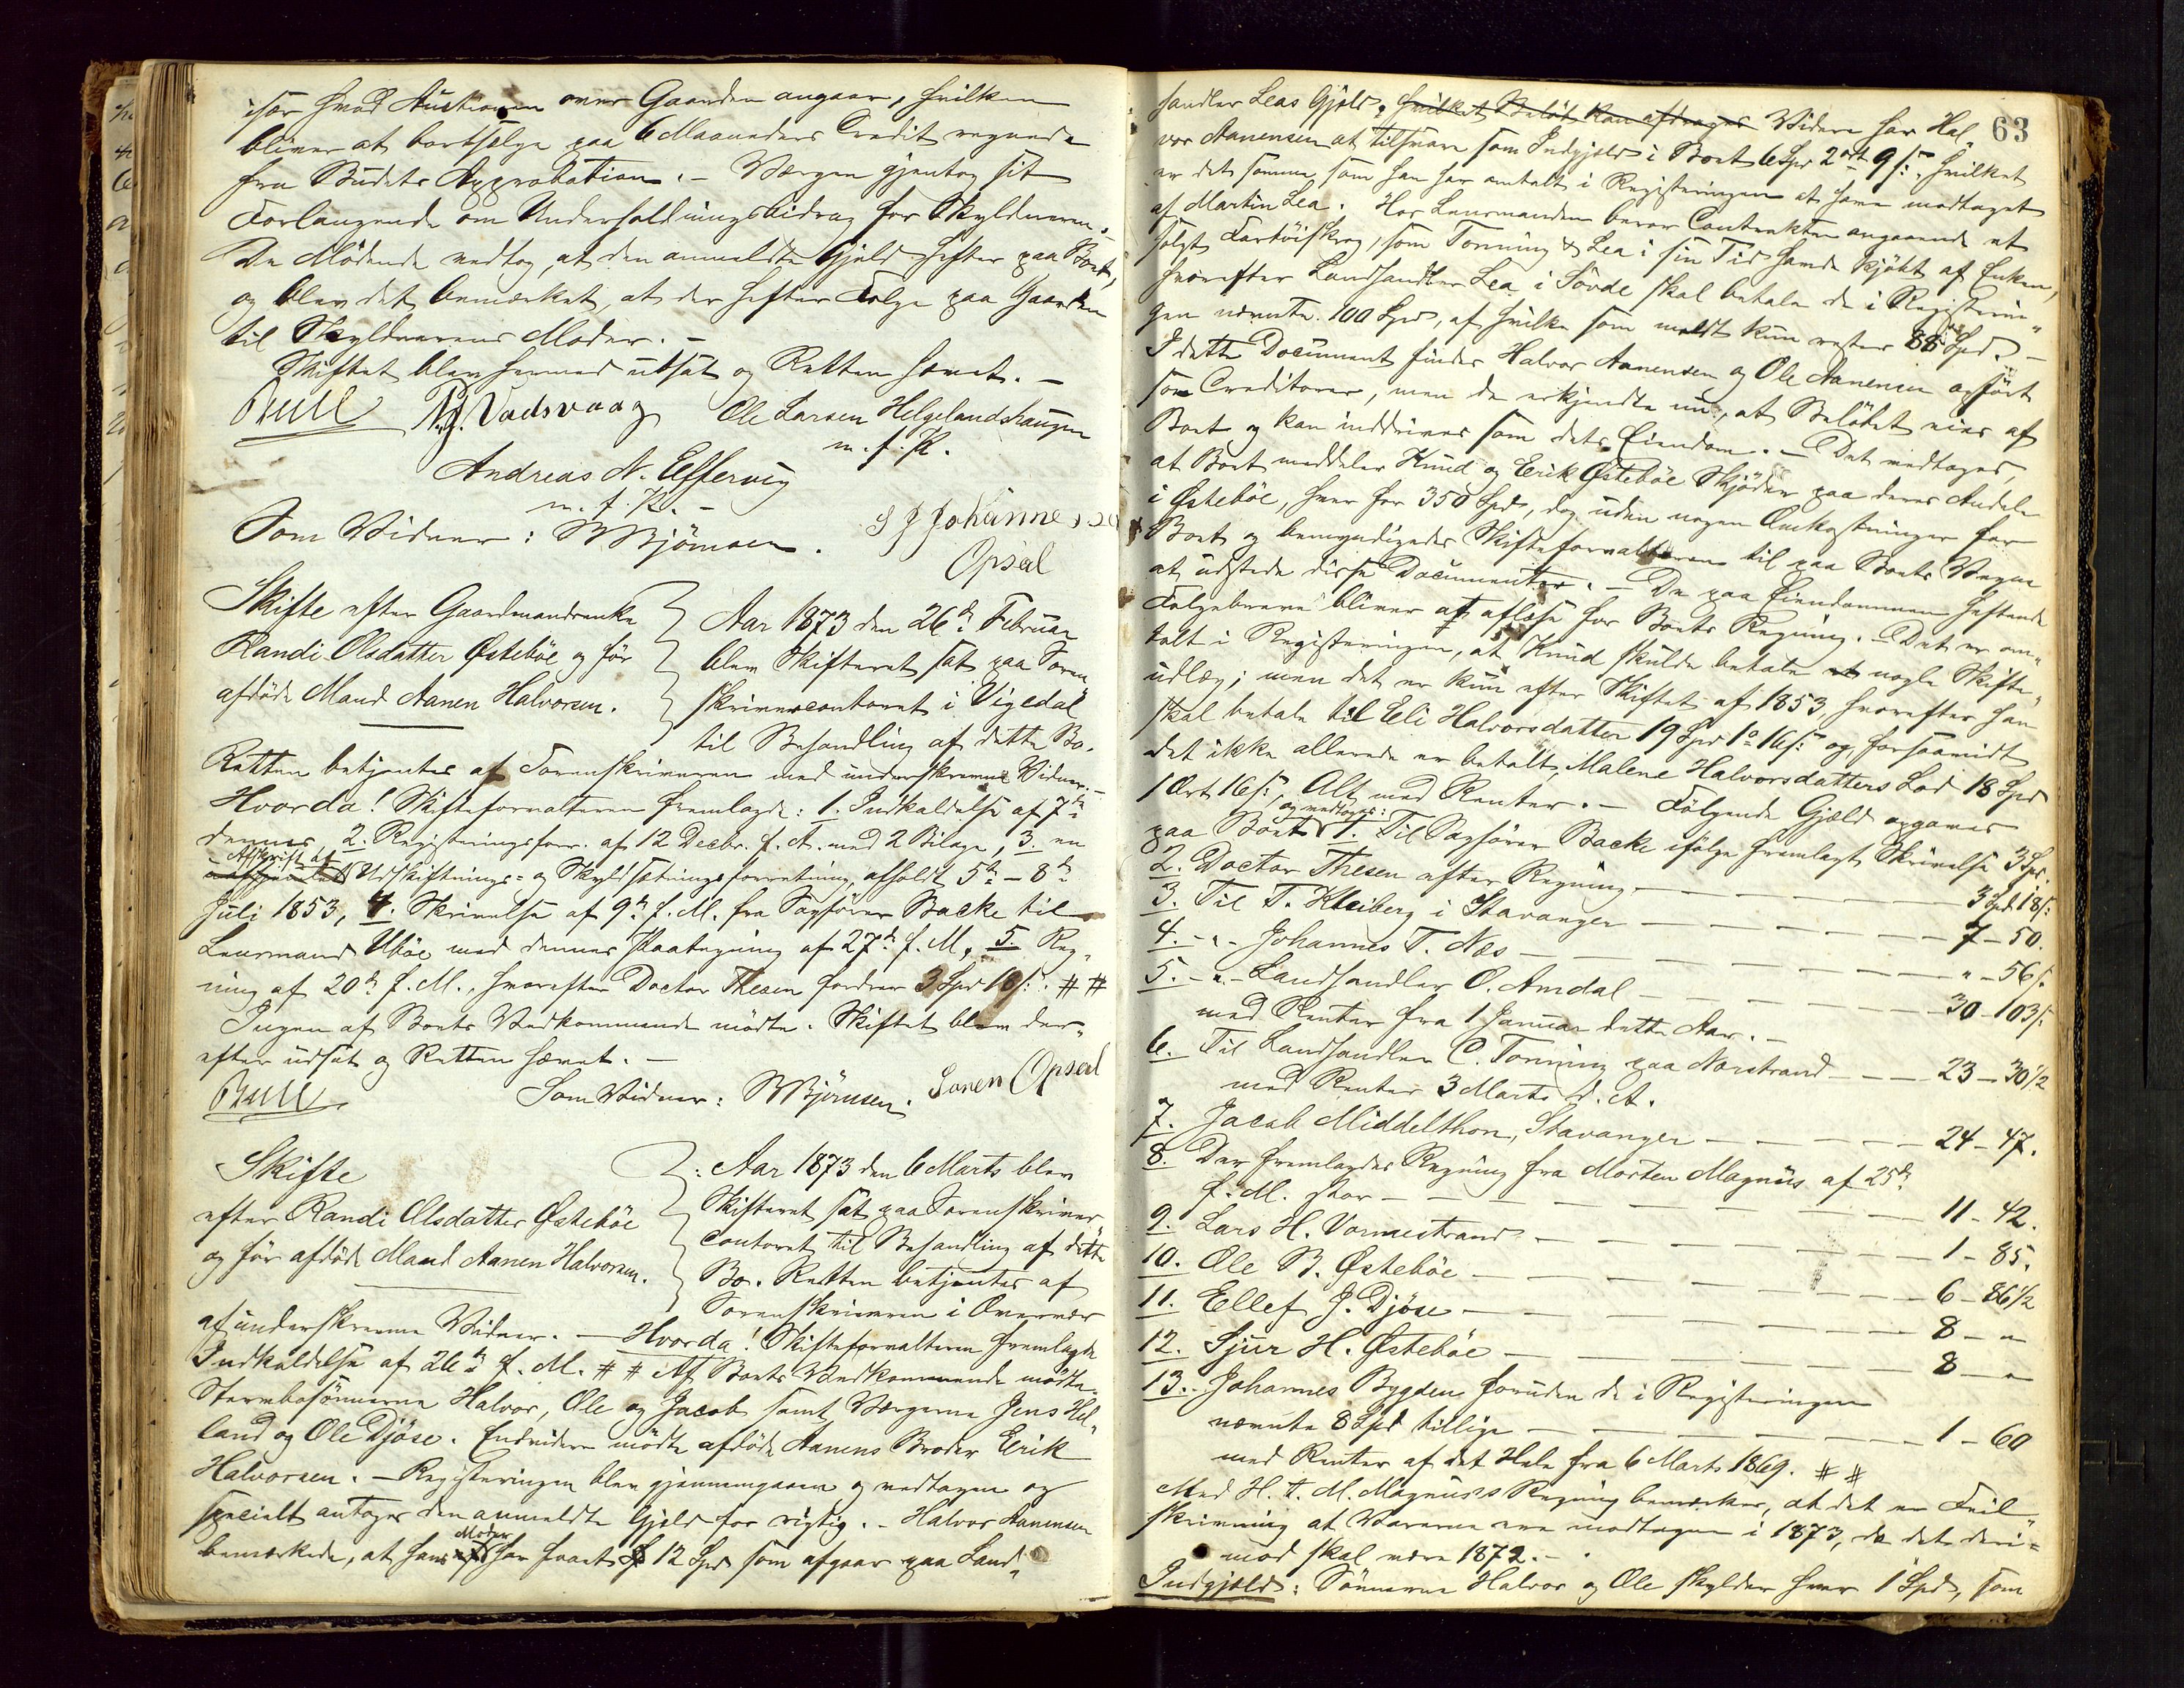 især hvad Auktionen over Gaarden angaar, hvilken
bliver at bortsælge paa 6 Maaneders Credit regnede
fra Budets Approbation. – Værgen gjentog sit
Forlangende om Underholdningsbidrag for Skyldneren. –
De Mødende vedtog, at den anmeldte Gjeld hefter paa Boet,
og blev det bemærket, at der hefter Følge paa Gaarden
til Skyldnerens Moder. –
Skiftet blev hermed udsat og Retten hævet. –
Bull Vadsvaag Ole Larsen Helgelandshaugen
m. f. P.
Andreas N. Effervig
m. f. P. –
Som Vidner: Bjørnsen. S J Johannessen
Opsal
Skifte efter Gaardmandsenke
Randi Olsdatter Østebøe og før
afdøde Mand Aanen Halvorsen.
Aar 1873 den 26de Februar
blev Skifteret sat paa Soren„
skrivercontoret i Vigedal
til Behandling af dette Bo.
Retten betjentes af Sorenskriveren med underskrevne Vidner. –
Hvorda! Skifteforvalteren fremlagde: 1. Indkaldelse af 7de
dennes, 2. Registeringsforr. af 12 Decbr. f. A. med 2 Bilage, 3. en
Afskrift af
Udskiftnings- og Skyldsætningsforretning, afholdt 5te – 8de
Juli 1853, 4. Skrivelse af 9de f. M. fra Sagfører Backe til
Lensmand Ubøe med dennes Paategning af 27de f. M., 5. Reg„
ning af 20de f. M., hvorefter Doctor Thesen fordrer 3 Spd 18 s. # #
Ingen af Boets Vedkommende mødte. Skiftet blev der„
efter udsat og Retten hævet. –
Bull Som Vidner: Bjørnsen. Soren Opsal
Skifte
efter Randi Olsdatter Østebøe
og før afdøde Mand Aanen Halvorsen.
Aar 1873 den 6 Marts blev
Skifteret sat paa Sorenskriver„
contoret til Behandling af dette
Bo. Retten betjentes af
Sorenskriveren i Overvær
af underskrevne Vidner. – Hvorda! Skifteforvalteren fremlagde
Indkaldelse af 26de f. M. # # Af Boets Vedkommende mødte
Stervbosønnerne Halvor, Ole og Jacob samt Værgerne Jens Hel„
land og Ole Djøse. Endvidere mødte afdøde Aanens Broder Eerik
Halvorsen. – Registeringen blev gjennemgaaen og vedtagen og
specielt antoges den anmeldte Gjeld for rigtig. – Halvor Aanensen
Moder
bemærkede, at hans har faaet 12 Spd som afgaar paa Land„
63
handler Leas Gjeld. hvilket Beløb kan afdrages Videre har Hal„
vor Aanensen at tilsvare som Indgjeld i Boet 6 Spd 2 ort 9 s., hvilket
er det samme, som han har omtalt i Registeringen at have modtaget
af Martin Lea. Hos Lensmanden beror Contrakten angaaende et
solgt Fartøiskrog, som Tonning & Lea i sin Tid havde kjøbt af Enken,
hvorefter Landhandler Lea i Sövde skal betale de i Registerin„
gen nævnte 100 Spd, af hvilke som meldt kun rester 88 Spd. –
I dette Document findes Halvor Aanensen og Ole Aanensen opført
som Creditorer, men de erkjendte nu, at Beløbet eies af
Boet og kan inddrives som dets Eiendom. – Det vedtages,
at Boet meddeler Knud og Eerik Østebøe Skjøder paa deres Andele
i Østebøe, hver for 350 Spd, dog uden nogen Omkostninger for
Boet og bemyndigedes Skifteforvalteren til paa Boets Vegne
at udstede disse Documenter. – De paa Eiendommen heftende
Følgebreve bliver at aflæse for Boets Regning. – Det er om„
talt i Registeringen, at Knud skulde betale nogle Skifte„
udlæg; men det er kun efter Skiftet af 1853, hvorefter han
skal betale til Eli Halvorsdatter 19 Spd 1 o 16 s. og, forsaavidt
det ikke allerede er betalt, Malene Halvorsdatters Lod 18 Spd
1 Ort 16 s., Alt med Renter. – Følgende Gjæld opgaves
og vedtoges:
paa Boet 1. Til Sagfører Backe ifølge fremlagt Skrivelse 3 Spd.
2. Doctor Thesen efter Regning — 3 Spd 18 s.
3. Til T. Kleiberg i Stavanger — 7 – 50.
4. – „ – Johannes T. Næs — „ – 56 s.
5. – „ – Landhandler O. Amdal — 30 – 103 s.
med Renter fra 1 Januar dette Aar. –
6. Til Landhandler C. Tonning paa Norstrand — 23 – 30 1/2
med Renter 3 Marts d. A.
7. Jacob Middelthon, Stavanger — 24 – 47.
8. Der fremlagdes Regning fra Morten Magnus af 25de
f. M. stor — 11 – 42.
9. Lars H. Vormestrand — 1 – 85.
10. Ole B. Østebøe — 6 – 86 1/2
11. Ellef J. Djöse — 8 – „
12. Sjur H. Østebøe — 8 – „
13. Johannes Bygden foruden de i Registeringen
nævnte 8 Spd tillige — 1 – 60
med Renter af det Hele fra 6 Marts 1869. # #
Med H. t. M. Magnus's Regning bemærkes, at det er Feil„
skrivning at Varerne ere modtagne i 1873, da det deri=
mod skal være 1872. –
Indgjeld: Sønnerne Halvor og Ole skylder hver 1 Spd, som